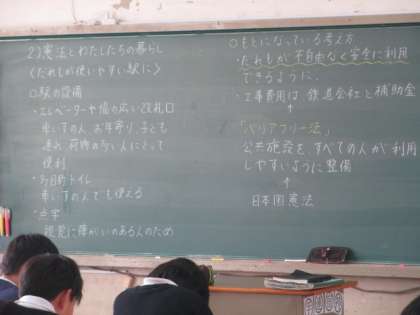 2)憲法とわたしたちの暮らし
〈だれもが使いやすい駅に〉
○駅の設備
・エレベーターや幅の広い改札口
車いすの人、お年寄り、子ども
連れ、荷物の多い人にとって
便利
・多目的トイレ
車いすの人でも使える
・点字
視覚に障がいのある人のため
○もとになっている考え方
・だれもが不自由なく安全に利用
できるように。
・工事費用は、鉄道会社と補助金
↑
「バリアフリー法」
公共施設を、すべての人が利用
しやすいように整備
↑
日本国憲法